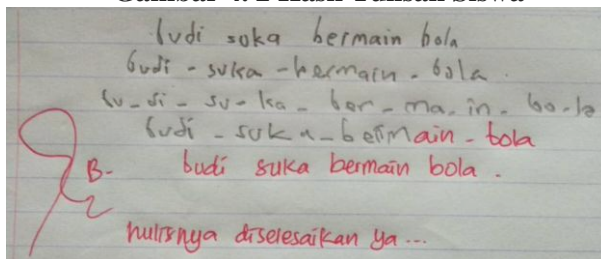 budi soka bermain bola
budi - suka - bermain - bola.
bu - di - su - ka - ber - ma - in - bo - la
budi - suka - bermain - bola
B- budi suka bermain bola.
nulisnya diselesaikan ya...